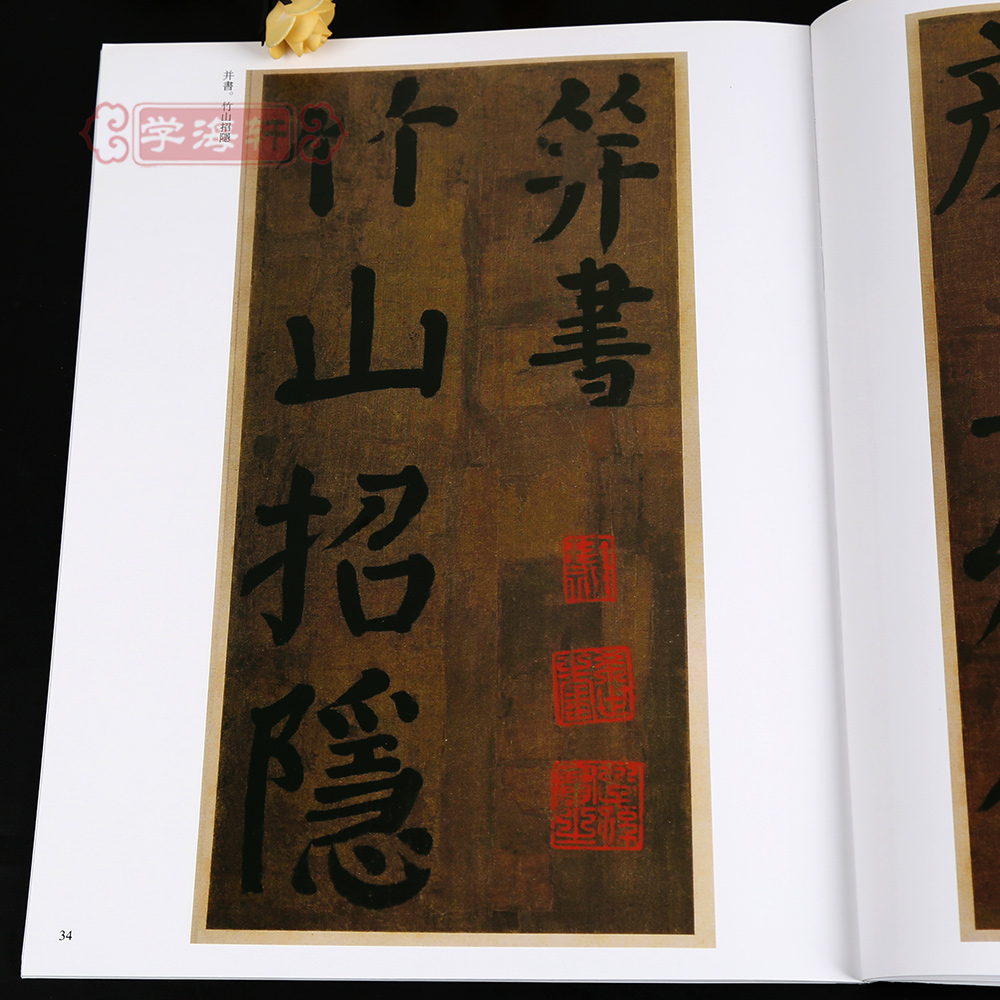 并書。竹山招隱
学海轩
筓書
竹山招隱
34